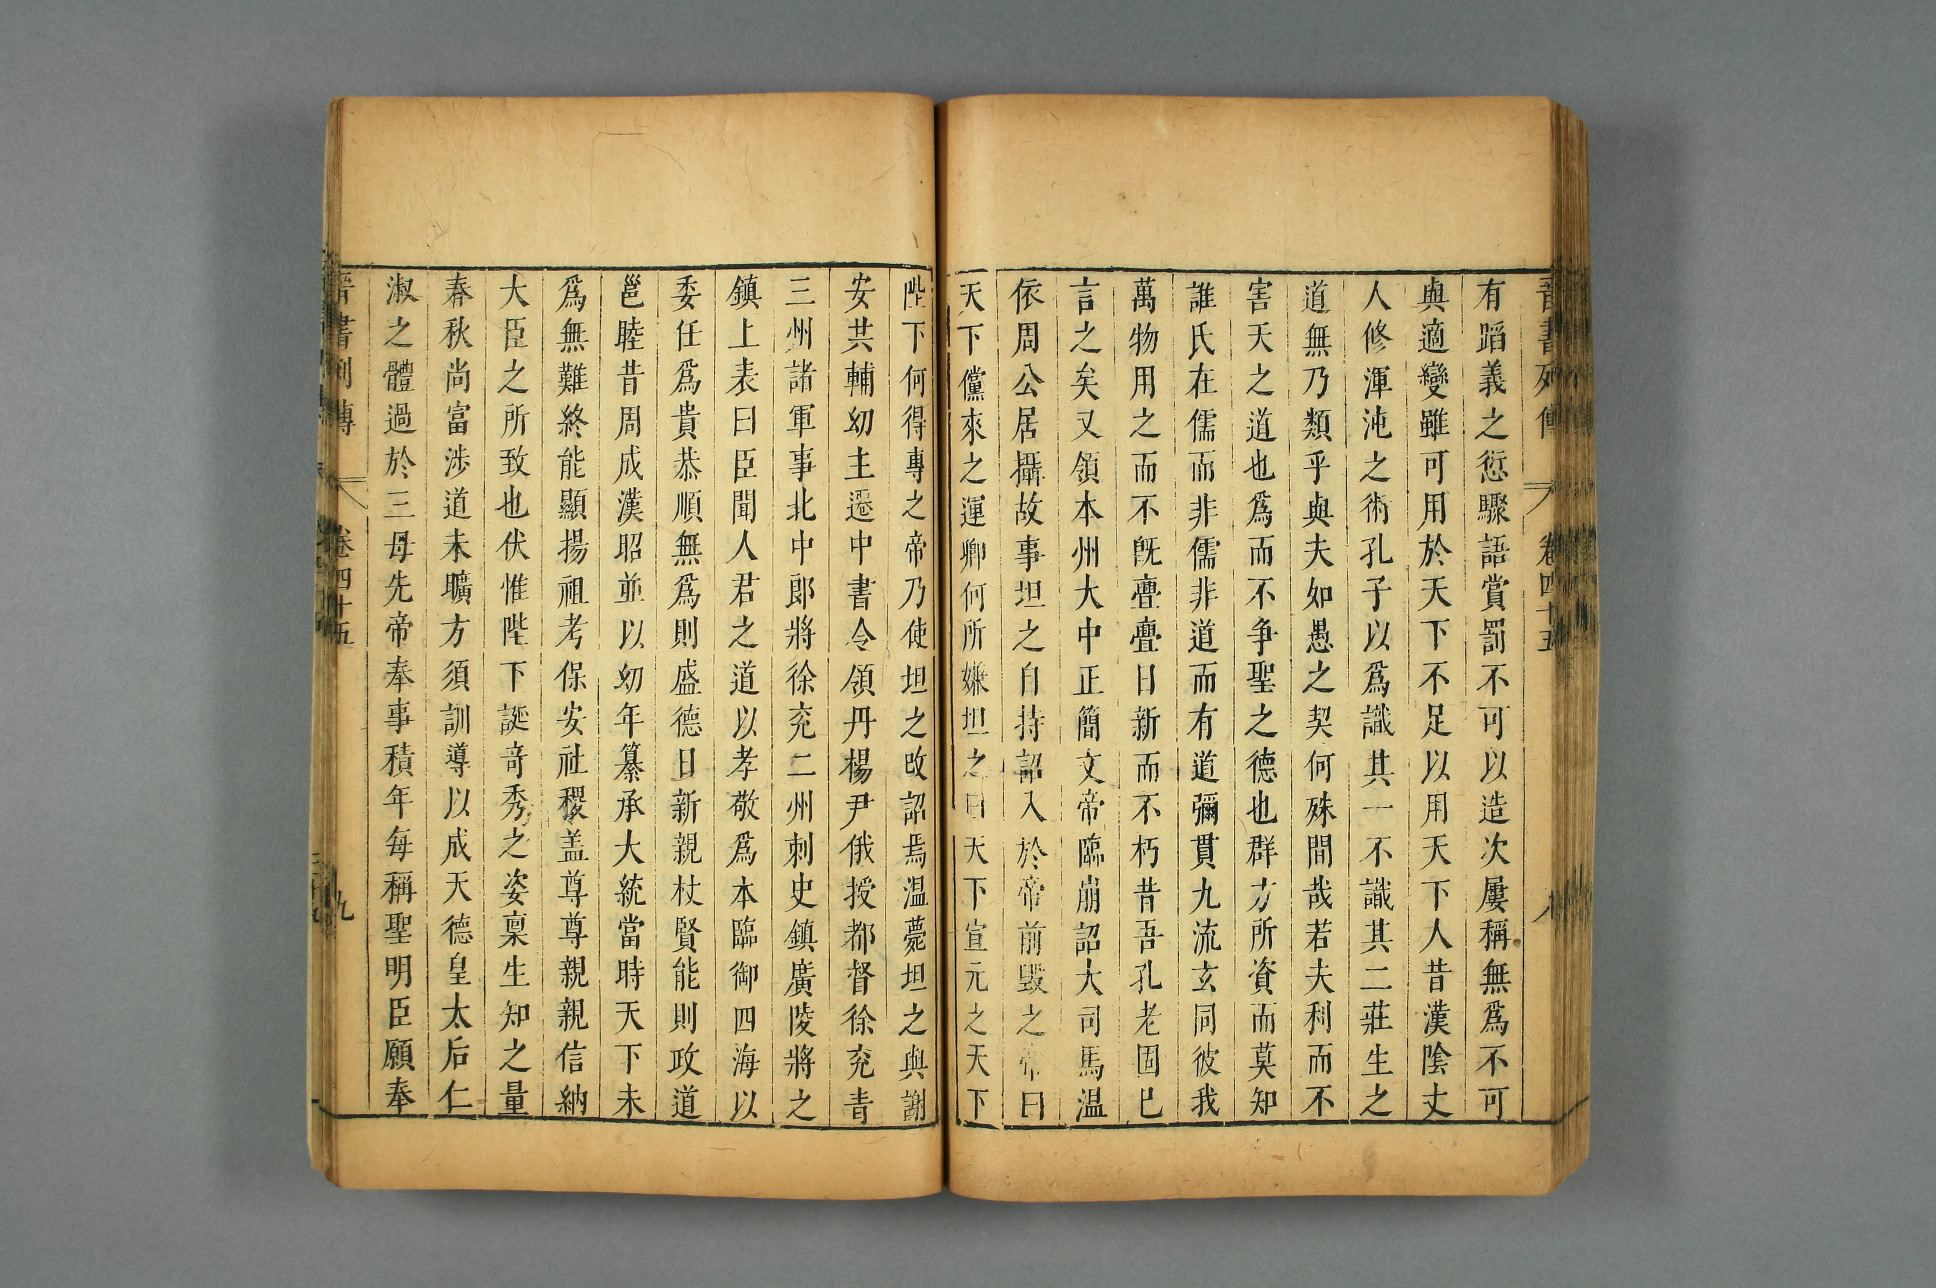 晉書列傳 卷四十五 八
有蹈義之愆驟語賞罰不可以造次屢稱無爲不可
與適變雖可用於天下不足以用天下人昔漢陰丈
人修渾沌之術孔子以爲識其一不識其二莊生之
道無乃類乎與夫如愚之契何殊間哉若夫利而不
害天之道也爲而不争聖之德也群方所資而莫知
誰氏在儒而非儒非道而有道彌貫九流玄同彼我
萬物用之而不旣亹亹日新而不朽昔吾孔老固已
言之矣又領本州大中正簡文帝臨崩詔大司馬温
依周公居攝故事坦之自持詔入於帝前毀之帝曰
天下儻來之運卿何所嫌坦之曰天下宣元之天下
陛下何得專之帝乃使坦之改詔焉温薨坦之與謝
安共輔幼主遷中書令領丹楊尹俄授都督徐兖青
三州諸軍事北中郎將徐兖二州刺史鎮廣陵將之
鎮上表曰臣聞人君之道以孝敬爲本臨御四海以
委任爲貴恭順無爲則盛德日新親杖賢能則政道
邕睦昔周成漢昭並以幼年纂承大統當時天下未
爲無難終能顯揚祖考保安社稷盖尊尊親親信納
大臣之所致也伏惟陛下誕奇秀之姿稟生知之量
春秋尚富涉道未曠方須訓導以成天德皇太后仁
淑之體過於三母先帝奉事積年每稱聖明臣願奉
晉書列傳 卷四十五 九